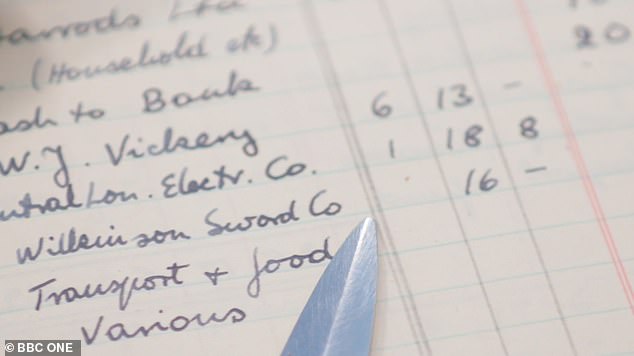 arrods Ltd
(Household etc)
ash to Bank 20
W.J. Vickery 6 13 -
ntral Lon. Electr. Co. 1 18 8
Wilkinson Sword Co 16 -
Transport + food
Various
© BBC ONE